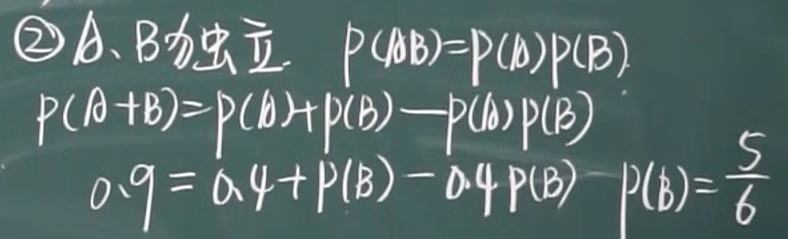 ② A、B为独立. P(AB)=P(A)P(B).
P(A+B)=P(A)+P(B)-P(A)P(B)
0.9=0.4+P(B)-0.4P(B) P(B)=5/6